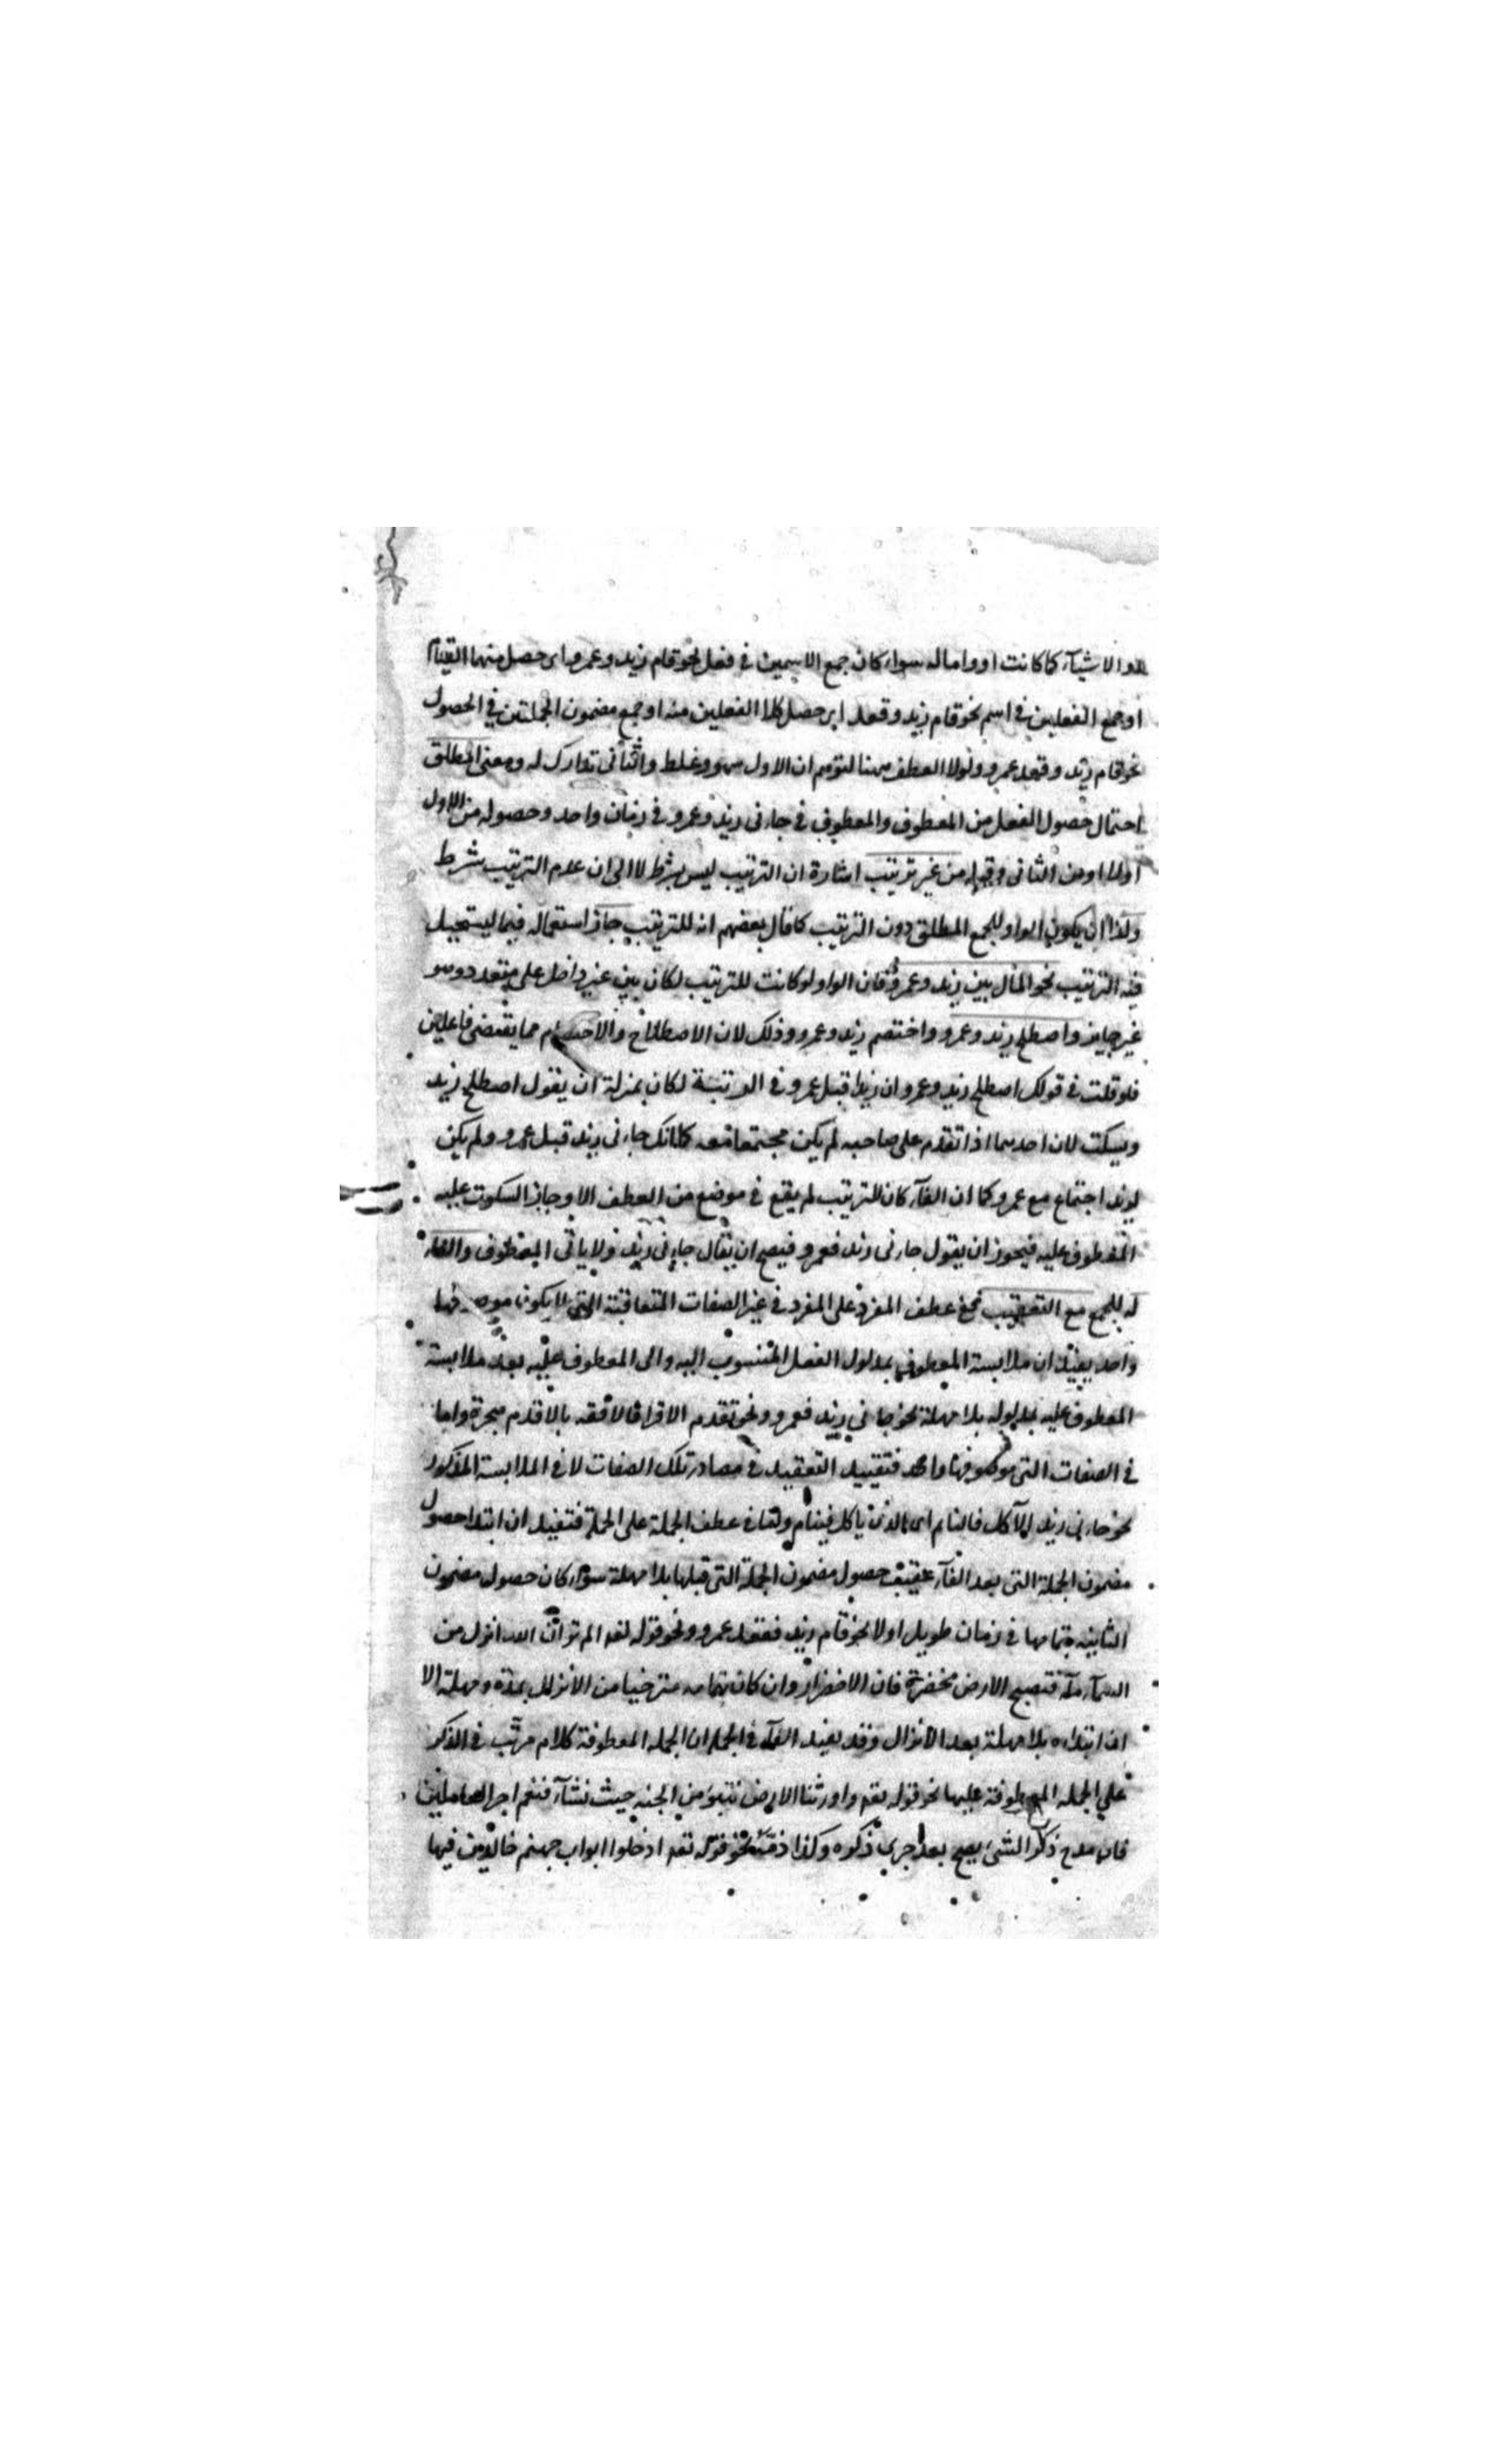 الاشيآء كما كانت او واما له سواء كان جمع الاسمين في فعل نحو قام زيد وعمرو اى حصل منهما القيام
او جمع الفعلين في اسم نحو قام زيد وقعد اى حصل كلا الفعلين منه او جمع مضمون الجملتين في الحصول
نحو قام زيد وقعد عمرو ولولا العطف ههنا لتوهم ان الاول سهو وغلط والثانى تدارك له ومعنى المطلق
احتمال حصول الفعل من المعطوف والمعطوف في جاءنى زيد وعمرو في زمان واحد وحصوله من الاول
اولا او من الثانى وقوله من غير ترتيب اشارة ان الترتيب ليس بشرط لا الى ان عدم الترتيب شرط
ولذا ان يكون الواو للجمع المطلق دون الترتيب كما قال بعضهم انه للترتيب جاز استعماله فيما يستحيل
فيه الترتيب نحو المال بين زيد وعمرو فان الواو لو كانت للترتيب لكان بين غير داخل على متعدد وهو
غير جايز واصطلح زيد وعمرو واختصم زيد وعمرو وذلك لان الاصطلاح والاختصام مما يقتضى فاعلين
فلو قلت في قولك اصطلح زيد وعمرو ان زيدا قبل عمرو في الرتبة لكان بمنزلة ان يقول اصطلح زيد
ويسكت لان احدهما اذا تقدم على صاحبه لم يكن مجتمعا معه كانك جاءنى زيد قبل عمرو ولم يكن
لزيد اجتماع مع عمرو كما ان الفآء كان للترتيب لم يقع في موضع من العطف الا وجاز السكوت عليه
المعطوف عليه فيجوز ان يقول جاءنى زيد فعمرو فيصح ان يقال جاءنى زيد ولا ياتى المعطوف والفاء
له للجمع مع التعقيب نحو عطف المفرد على المفرد في غير الصفات المتعاقبة التى لا يكون فيها
واحد يفيد ان ملابسة المعطوف بمدلول الفعل المنسوب اليه والى المعطوف عليه بعد ملابسة
المعطوف عليه بمدلوله بلا مهلة نحو جاءنى زيد فعمرو ونحو تقدم الاقرا فالافقه بالاقدم هجرة واما
في الصفات التى موصوفها واحد فتفييد التعقيد في مصادر تلك الصفات لا في الملابسة المذكور
نحو جاءنى زيد الآكل فالنايم اى الذى ياكل فينام واما في عطف الجملة على الجملة فتفيد ان ابتدا حصول
مضمون الجملة التى بعد الفآء عقيب حصول مضمون الجملة التى قبلها بلا مهلة سواء كان حصول مضمون
الثانيه بتمامها في زمان طويل اولا نحو قام زيد فقعد عمرو ونحو قوله تعه الم تر ان الله انزل من
السمآء مآء فتصبح الارض مخضرة فان الاخضرار وان كان بتمامه متراخيا من الانزال بمدة ومهلة الا
ان ابتداءه بلا مهلة بعد الانزال وقد يفيد الفآء في الجمل ان الجملة المعطوفة كلام مرتب في الذكر
على الجمله المعطوفة عليها نحو قوله تعه واورثنا الارض نتبوء من الجنه حيث نشآء فنعم اجر العاملين
فان مدح ذكر الشئ يصح بعد جرى ذكره وكذا ذمه نحو قوله تعه ادخلوا ابواب جهنم خالدين فيها